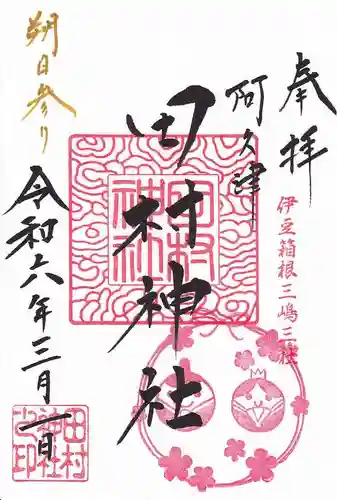 奉拝
伊豆箱根三嶋三社
阿久津
田村神社
朔日参り
令和六年三月一日
田村
神社
之印